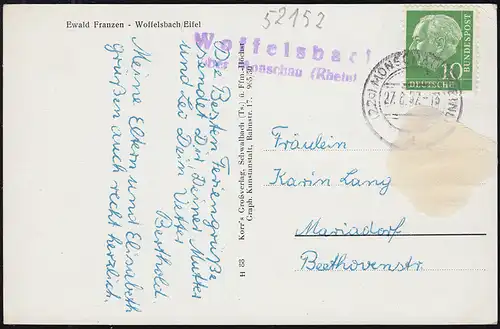 Ewald Franzen - Woffelsbach/Eifel
52152
Woffelsbach
über Monschau (Rheinl
DEUTSCHE
BUNDESPOST
10
(22c) MONSCHAU
27.6.57.-18
Die Besten Feriengrüße
sendet Dir Deiner Mutter
und Leo Dein Vetter
Berthold.
Meine Eltern und Elisabeth
grüßen auch recht herzlich.
H 53 Korr's Großverlag, Schwalbach (Ts.) ü. Ffm.-Höchst
Graph. Kunstanstalt, Bahnstr. 17.
Fräulein
Karin Lang
Mariadorf
Beethovenstr.